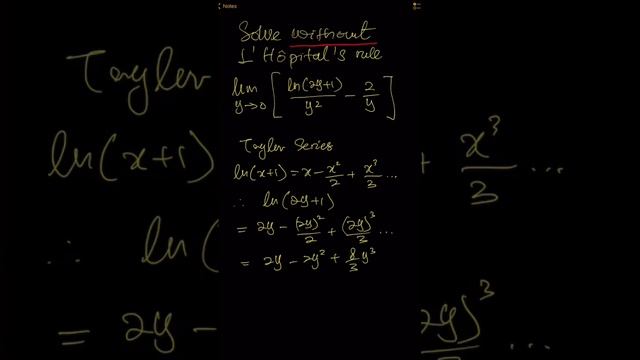 Notes
Solve without
L'Hôpital's rule
lim y→0 [ ln(2y+1)/y² - 2/y ]
Taylor Series
ln(x+1) = x - x²/2 + x³/3 ...
∴ ln(2y+1)
= 2y - (2y)²/2 + (2y)³/3 ...
= 2y - 2y² + 8/3 y³